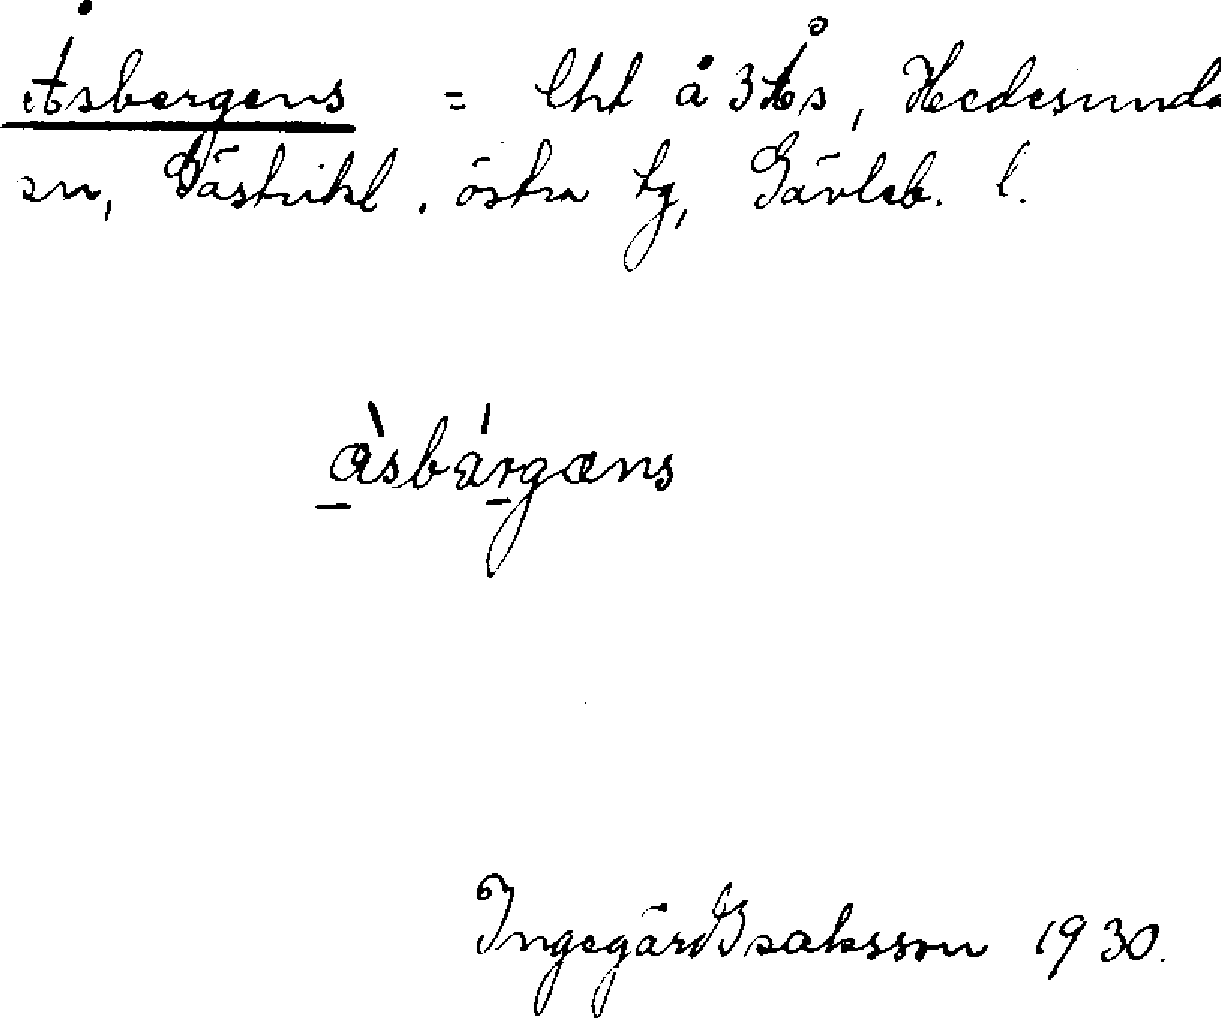 Åsbergens = lht å 3 Ås, Hedesunda
sn, Gästrikl. östra tg, Gävleb. l.
åsbárgæns
Ingegärd Isaksson 1930.